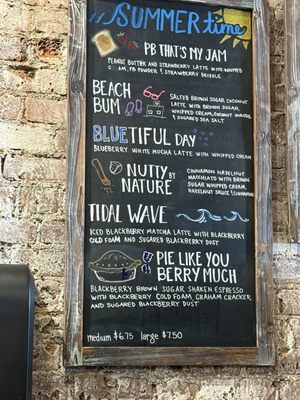 SUMMERtime
PB THAT'S MY JAM
PEANUT BUTTER AND STRAWBERRY LATTE WITH WHIPPED
PB POWDER & STRAWBERRY DRIZZLE
BEACH
BUM
SALTED BROWN SUGAR, COCONUT
LATTE WITH BROWN SUGAR
WHIPPED CREAM, COCONUT
& SUGARED SEA SALT
BLUETIFUL DAY
BLUEBERRY WHITE MOCHA LATTE WITH WHIPPED CREAM
NUTTY BY
NATURE
CINNAMON HAZELNUT
MACCHIATO WITH BROWN
SUGAR WHIPPED CREAM,
HAZELNUT SAUCE & CINNAMON
TIDAL WAVE
ICED BLACKBERRY MATCHA LATTE WITH BLACKBERRY
COLD FOAM AND SUGARED BLACKBERRY DUST
PIE LIKE YOU
BERRY MUCH
BLACKBERRY BROWN SUGAR SHAKEN ESPRESSO
WITH BLACKBERRY COLD FOAM, GRAHAM CRACKER,
AND SUGARED BLACKBERRY DUST
medium $6.75 large $7.50